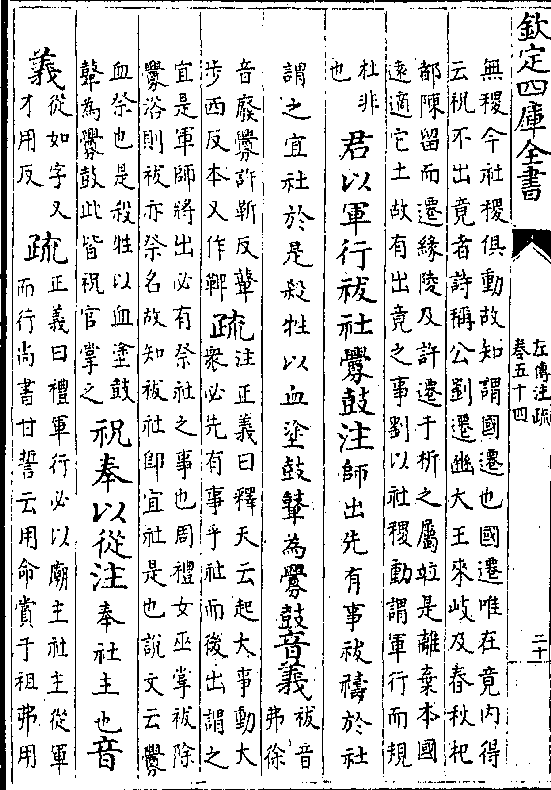 欽定四庫全書
左傳注疏
卷五十四
二十
無稷今社稷俱動故知謂國遷也國遷唯在竟内得
云祝不出竟者詩稱公劉遷豳大王來岐及春秋杞
都陳留而遷緣陵及許遷于析之屬竝是離棄本國
遠適它土故有出竟之事劉以社稷動謂軍行而規
杜非
也
君以軍行祓社釁鼓注師出先有事祓禱於社
謂之宜社於是殺牲以血塗鼓鼙為釁鼓音義祓音
弗徐
音廢釁許靳反鼙
步西反本又作鞞
疏注正義曰釋天云起大事動大
衆必先有事乎社而後出謂之
宜是軍師將出必有祭社之事也周禮女巫掌祓除
釁浴則祓亦祭名故知祓社即宜社是也說文云釁
血祭也是殺牲以血塗鼓
鼙為釁鼓此皆祝官掌之
祝奉以從注奉社主也音
義從如字又
才用反
疏正義曰禮軍行必以廟主社主從軍
而行尚書甘誓云用命賞于祖弗用